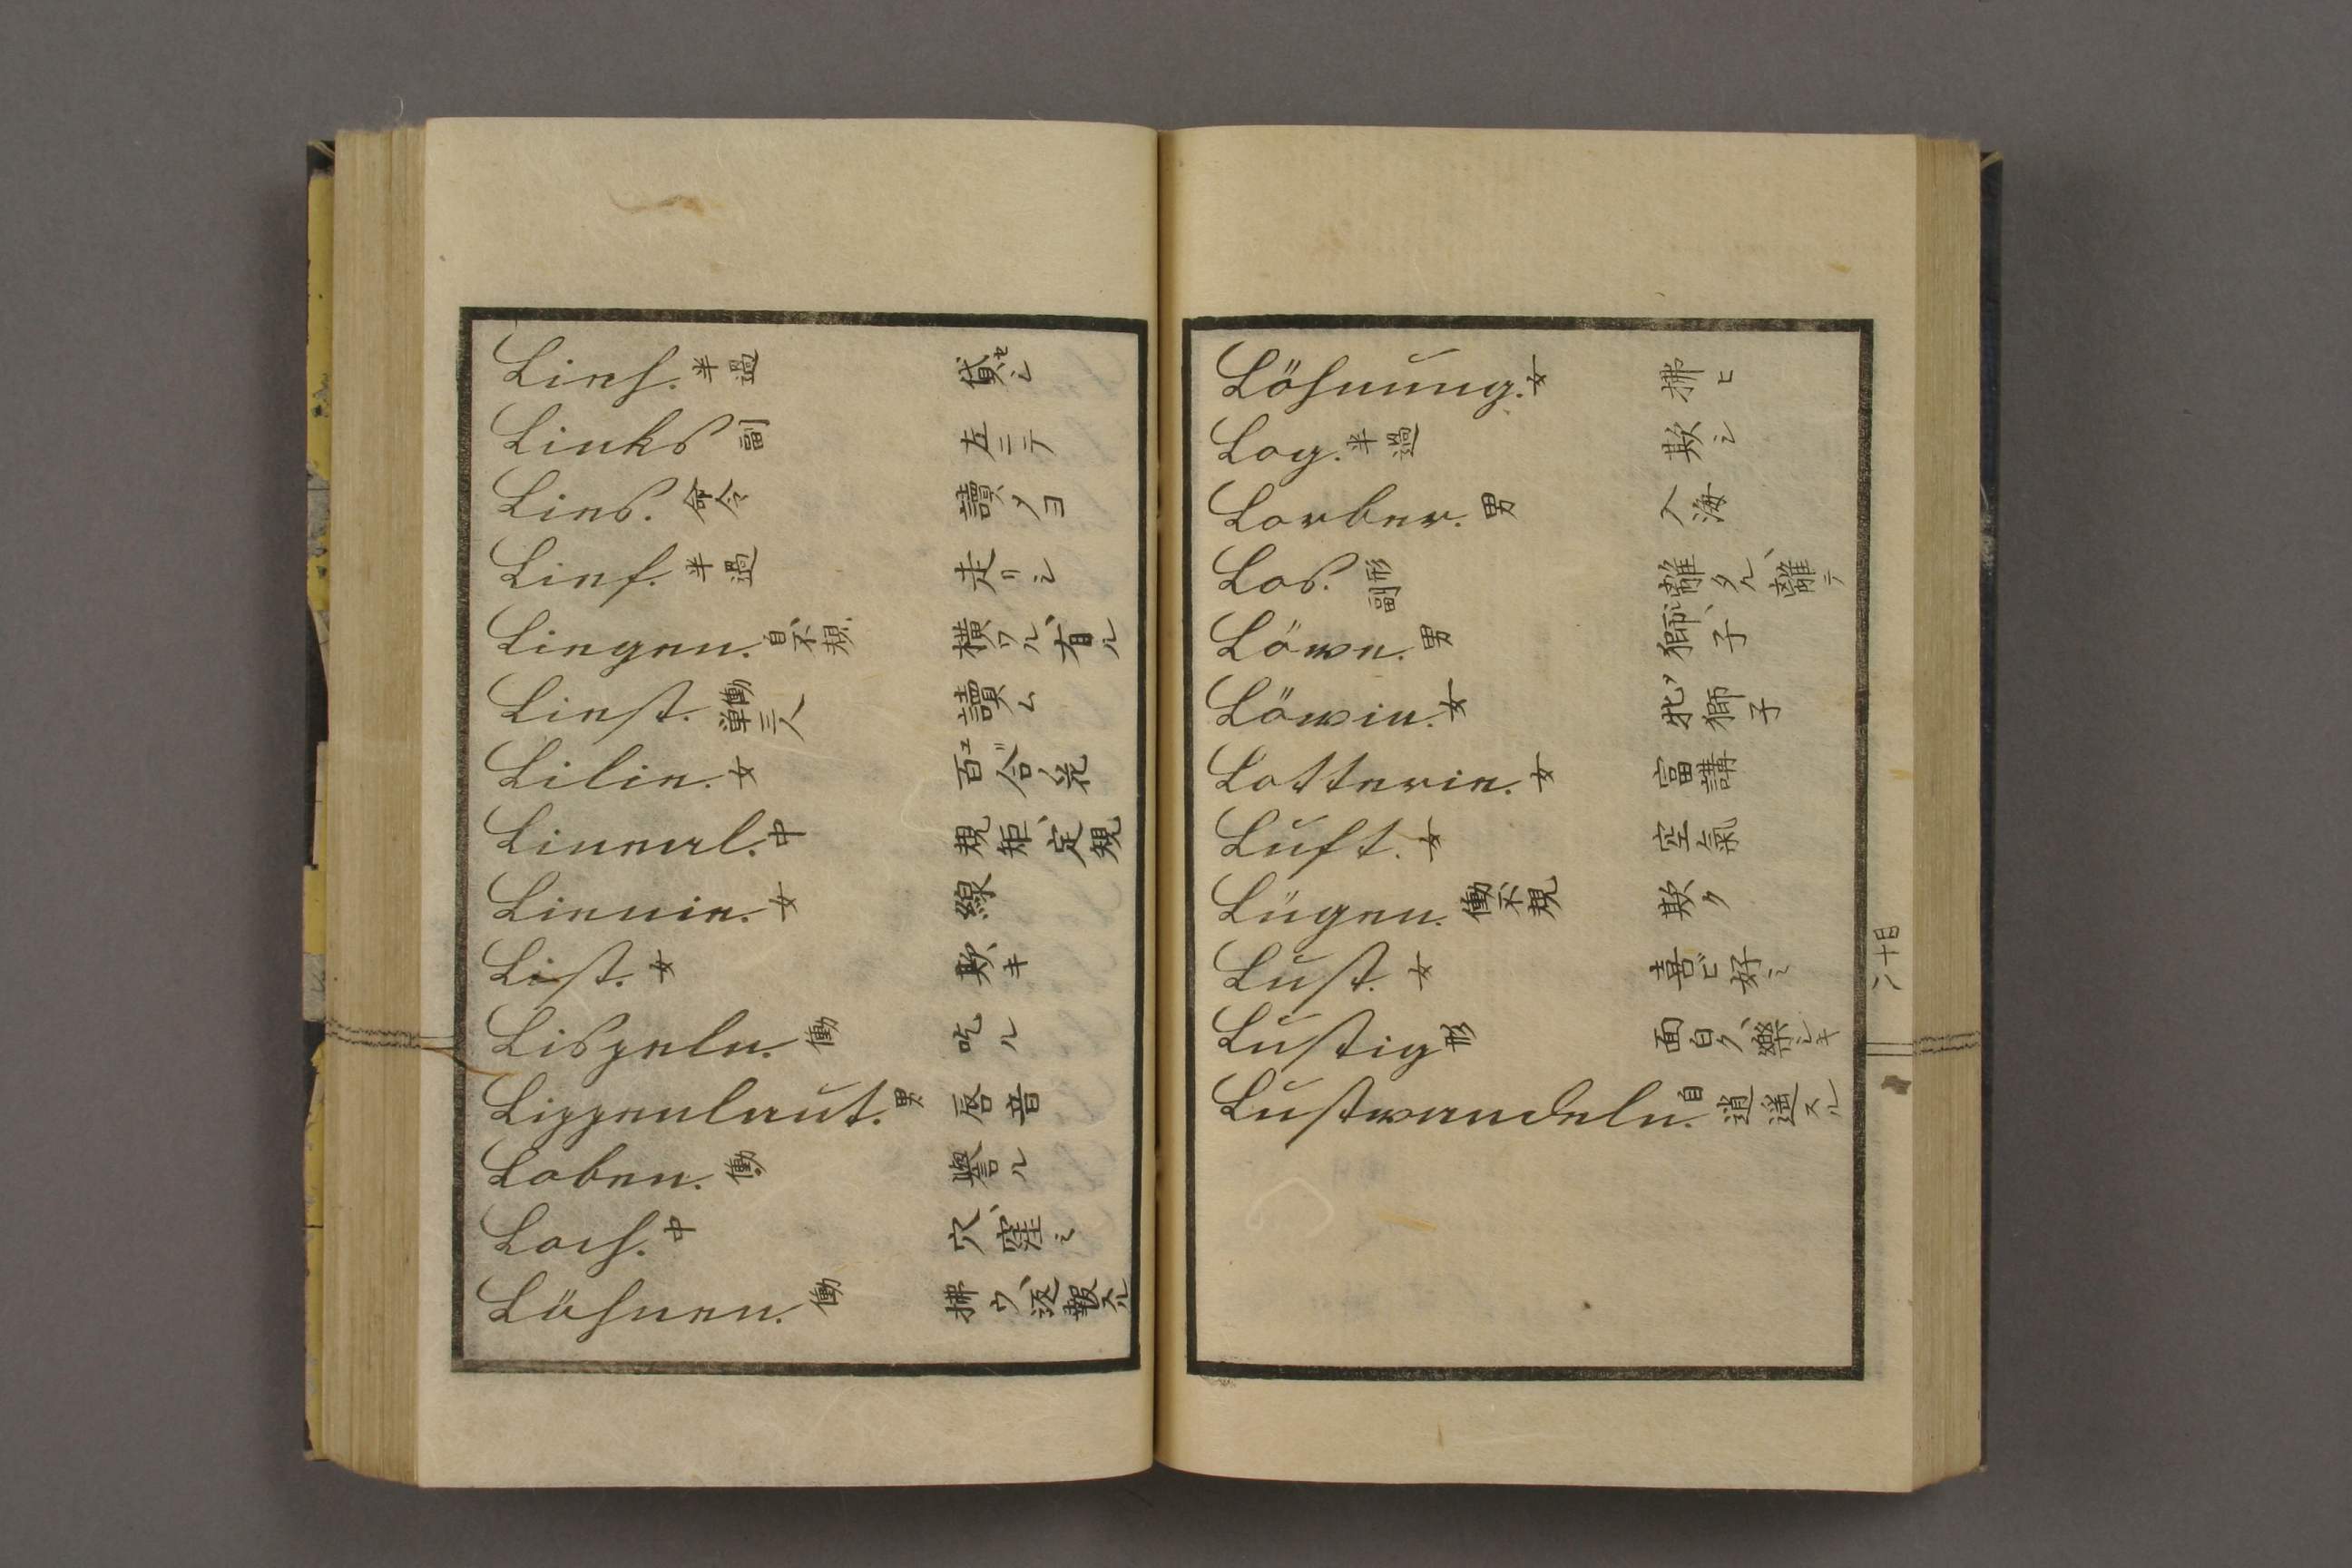 Lieh. 半過 貸セシ
Links 副 左ニテ
Lies. 命令 讀メヨ
Lief. 半過 走リシ
Liegen. 自、不規、 横ワル、有ル
Liest. 働単三人 讀ム
Lilie. 女 百合花
Lineal. 中 規矩、定規
Linnie. 女 線
List. 女 欺キ
Lispeln. 働 吃ル
Lippenlaut. 男 唇音
Loben. 働 譽ル
Loch. 中 穴、窪ミ
Löhnen. 働 拂ウ、返報スル
Löhnung. 女 拂ヒ
Log. 半過 欺シ
Lorber. 男
Los. 形副 離タル、離テ
Löwe. 男 獅子
Löwin. 女 牝獅子
Lotterie. 女 富講
Luft. 女 空氣
Lügen. 働不規 欺ク
Lust. 女 喜ビ好ミ
Lustig 形 面白ク、樂シキ
Lustwandeln. 自 逍遥スル